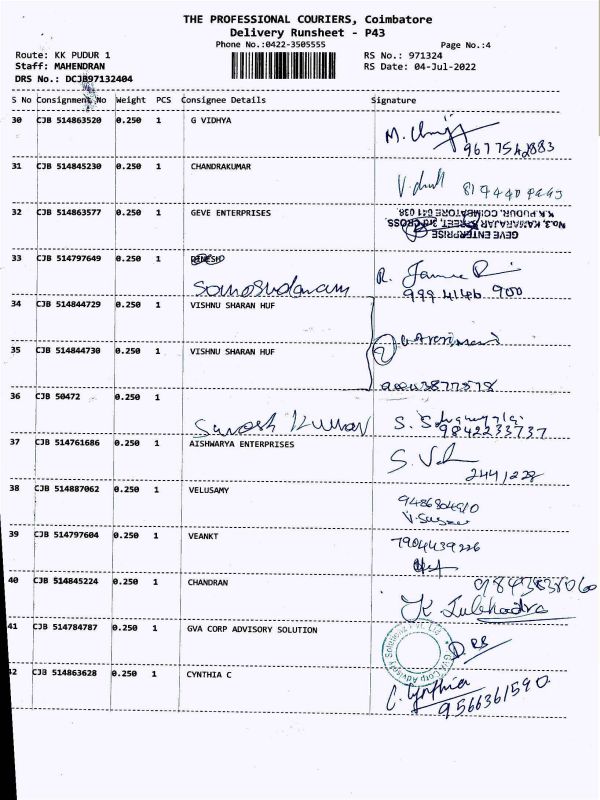 THE PROFESSIONAL COURIERS, Coimbatore
Delivery Runsheet - P43
Phone No.:0422-3505555
Page No.:4
Route: KK PUDUR 1
RS No.: 971324
Staff: MAHENDRAN
RS Date: 04-Jul-2022
DRS No.: DCJB97132404
S No Consignment No Weight PCS Consignee Details Signature
30 CJB 514863520 0.250 1 G VIDHYA
M.
31 CJB 514845230 0.250 1 CHANDRAKUMAR
32 CJB 514863577 0.250 1 GEVE ENTERPRISES
GEVE ENTERPRISE
No.3, KAMARAJAR STREET, 3rd CROSS,
K.K. PUDUR, COIMBATORE 641 038.
33 CJB 514797649 0.250 1 DINESH
R.
999 4146 900
34 CJB 514844729 0.250 1 VISHNU SHARAN HUF
35 CJB 514844730 0.250 1 VISHNU SHARAN HUF
36 CJB 50472 0.250 1
S.
9842233737
37 CJB 514761686 0.250 1 AISHWARYA ENTERPRISES
38 CJB 514887062 0.250 1 VELUSAMY
39 CJB 514797604 0.250 1 VEANKT
7904439226
40 CJB 514845224 0.250 1 CHANDRAN
41 CJB 514784787 0.250 1 GVA CORP ADVISORY SOLUTION
GVA Corp Advisory Solutions
42 CJB 514863628 0.250 1 CYNTHIA C
C. Cynthia
9566361590